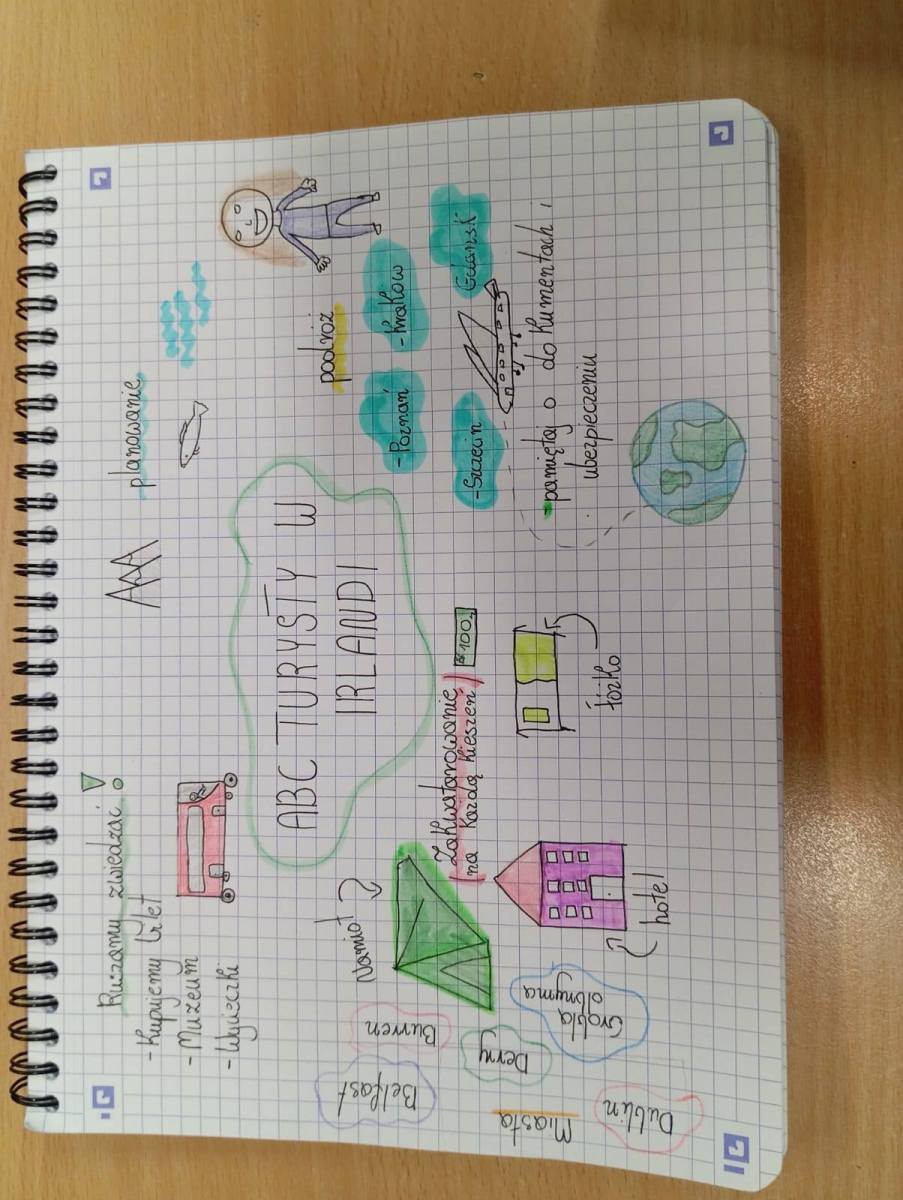 ABC TURYSTY W
IRLANDI
Ruszamy zwiedzać!
- Kupujemy bilet
- Muzeum
- Wycieczki
planowanie
podróż
- Poznań
- Kraków
- Szczecin
Gdańsk
- pamiętaj o dokumentach i
ubezpieczeniu
Zakwaterowanie
na każdą kieszeń
100
Namiot
hotel
łóżko
Miasta
Dublin
Belfast
Derry
Burren
Grobla
olbrzyma